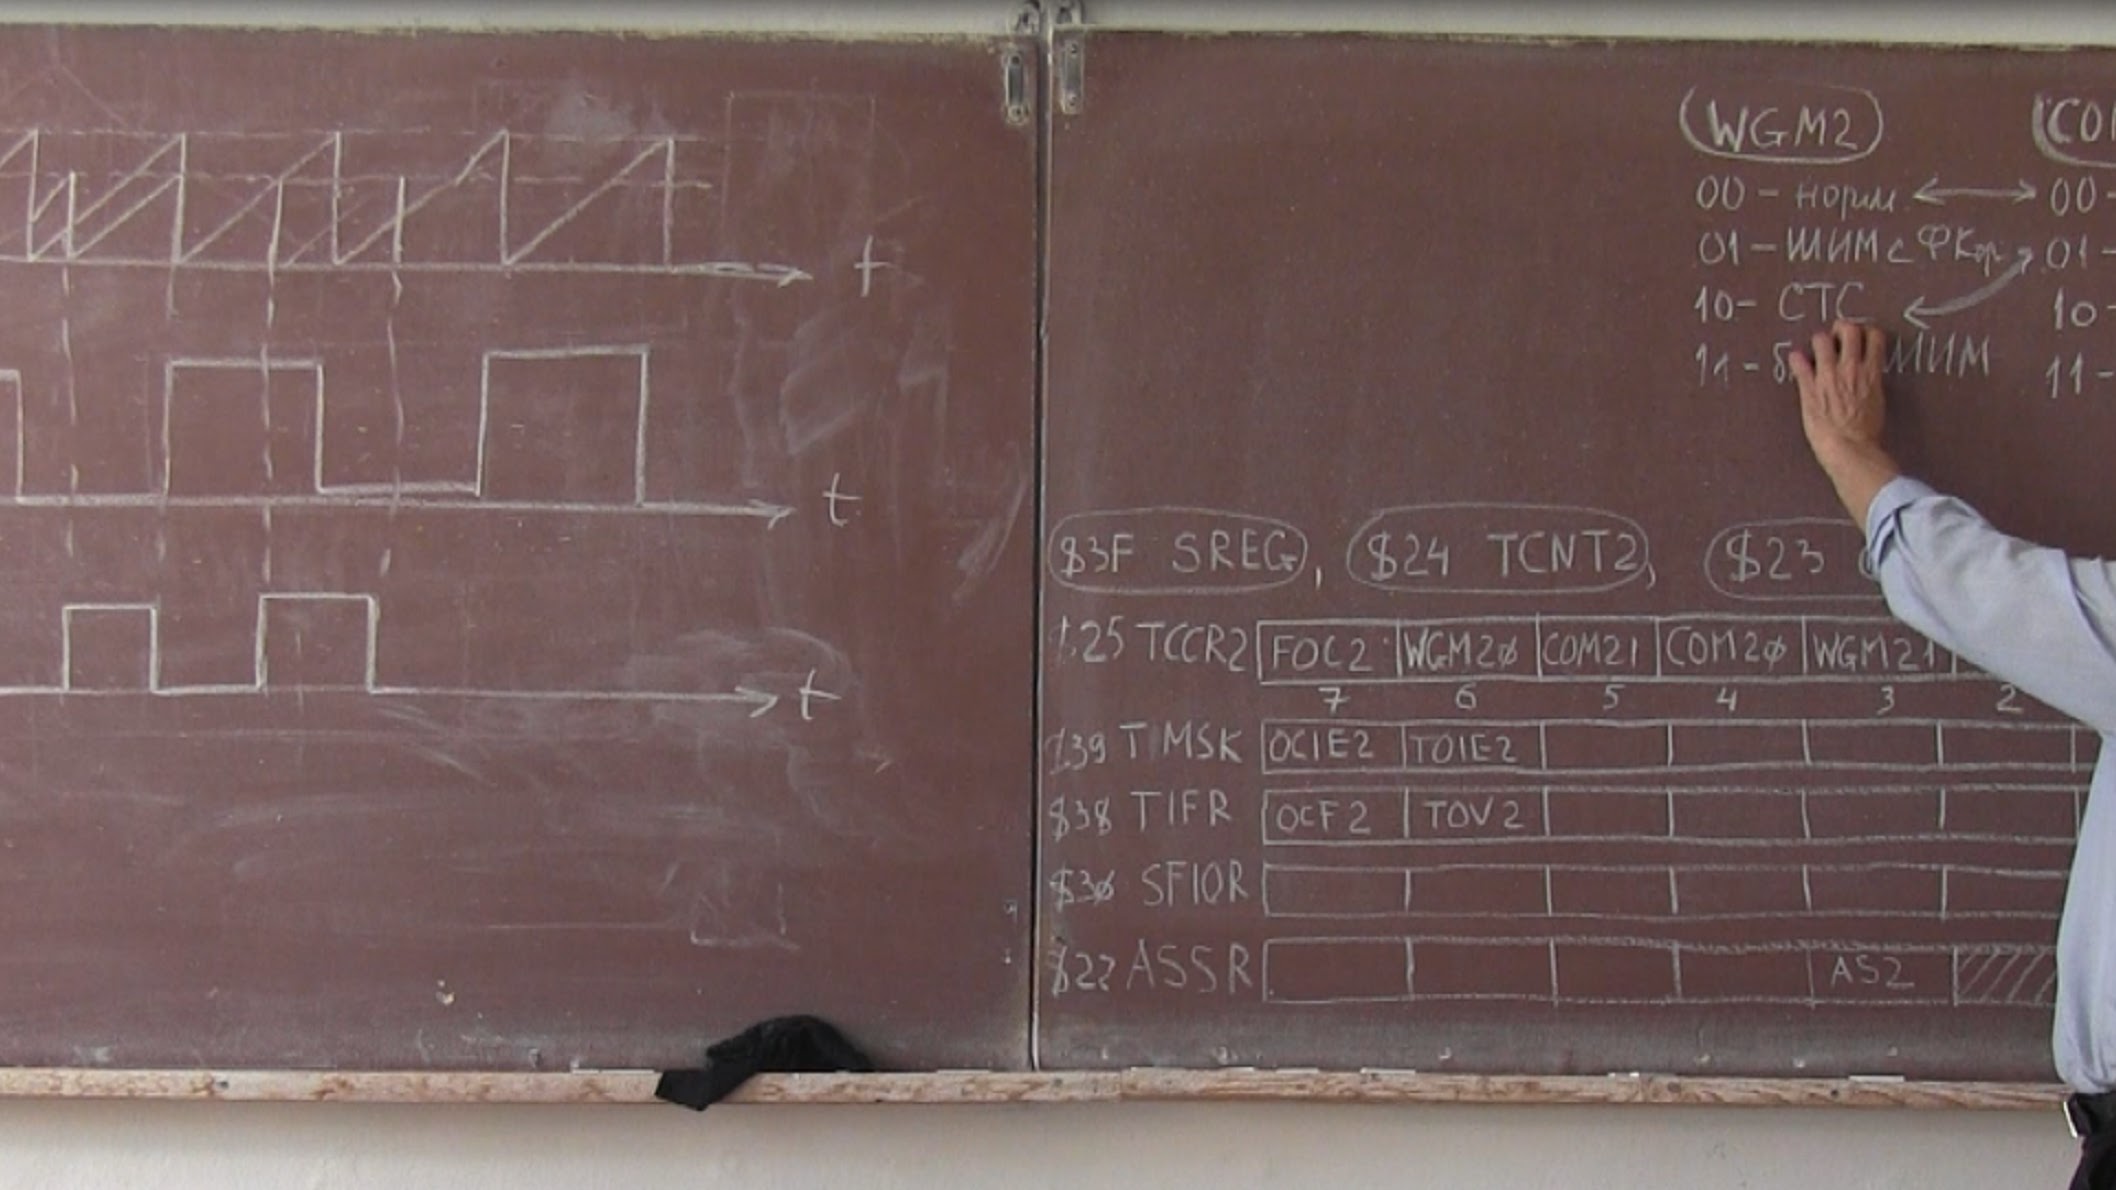 t
t
t
WGM2
00 - норм. 00 -
01 - ШИМ с ФКор. 01 -
10 - СТС 10 -
11 - ШИМ 11 -
$3F SREG, $24 TCNT2, $23
$25 TCCR2 FOC2 WGM2Ø COM21 COM2Ø WGM21
7 6 5 4 3 2
$39 TIMSK OCIE2 TOIE2
$38 TIFR OCF2 TOV2
$3Ø SFIOR
$22 ASSR AS2